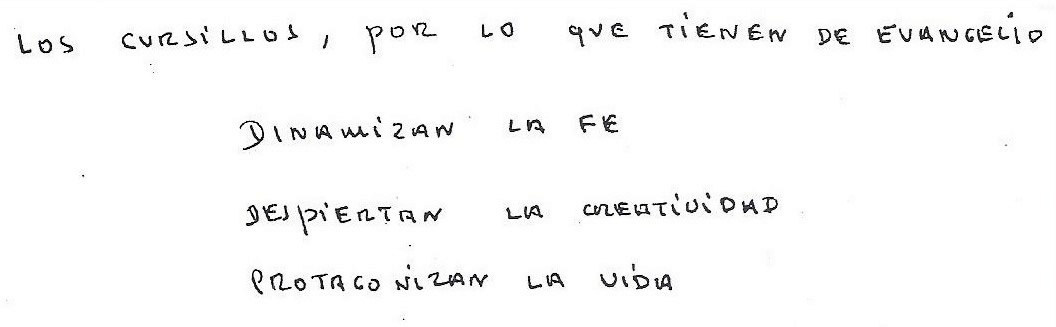 LOS CURSiLLOS, POR LO QUE TiENEN DE EVANGELiO
DINAMiZAN LA FE
DESPiERTAN LA CREATiViDAD
PROTAGONiZAN LA ViDA